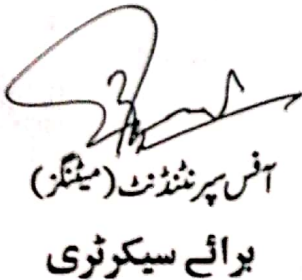 آفس سپرنٹنڈنٹ (میٹنگز)
برائے سیکرٹری